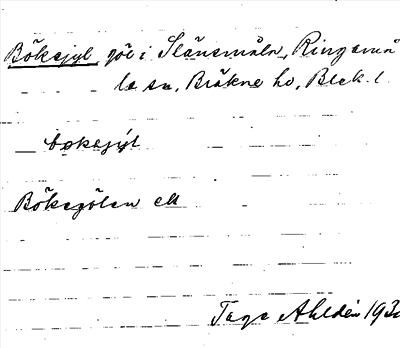 Bökejyl göl i Slänsmåla, Ringamå
la sn, Bräkne hd, Blek. l.
bøkejyl
Bökegölen ek
Tage Ahldén 193